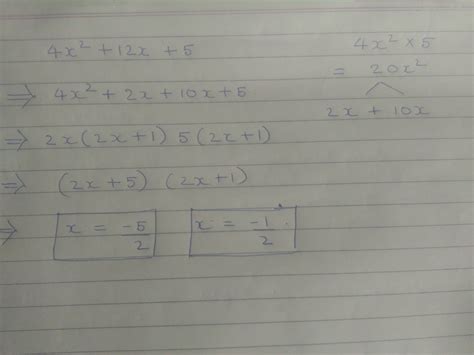 4x² + 12x + 5
⇒ 4x² + 2x + 10x + 5
⇒ 2x(2x+1) 5(2x+1)
⇒ (2x+5) (2x+1)
⇒ x = -5/2 x = -1/2
4x² × 5
= 20x²
2x + 10x